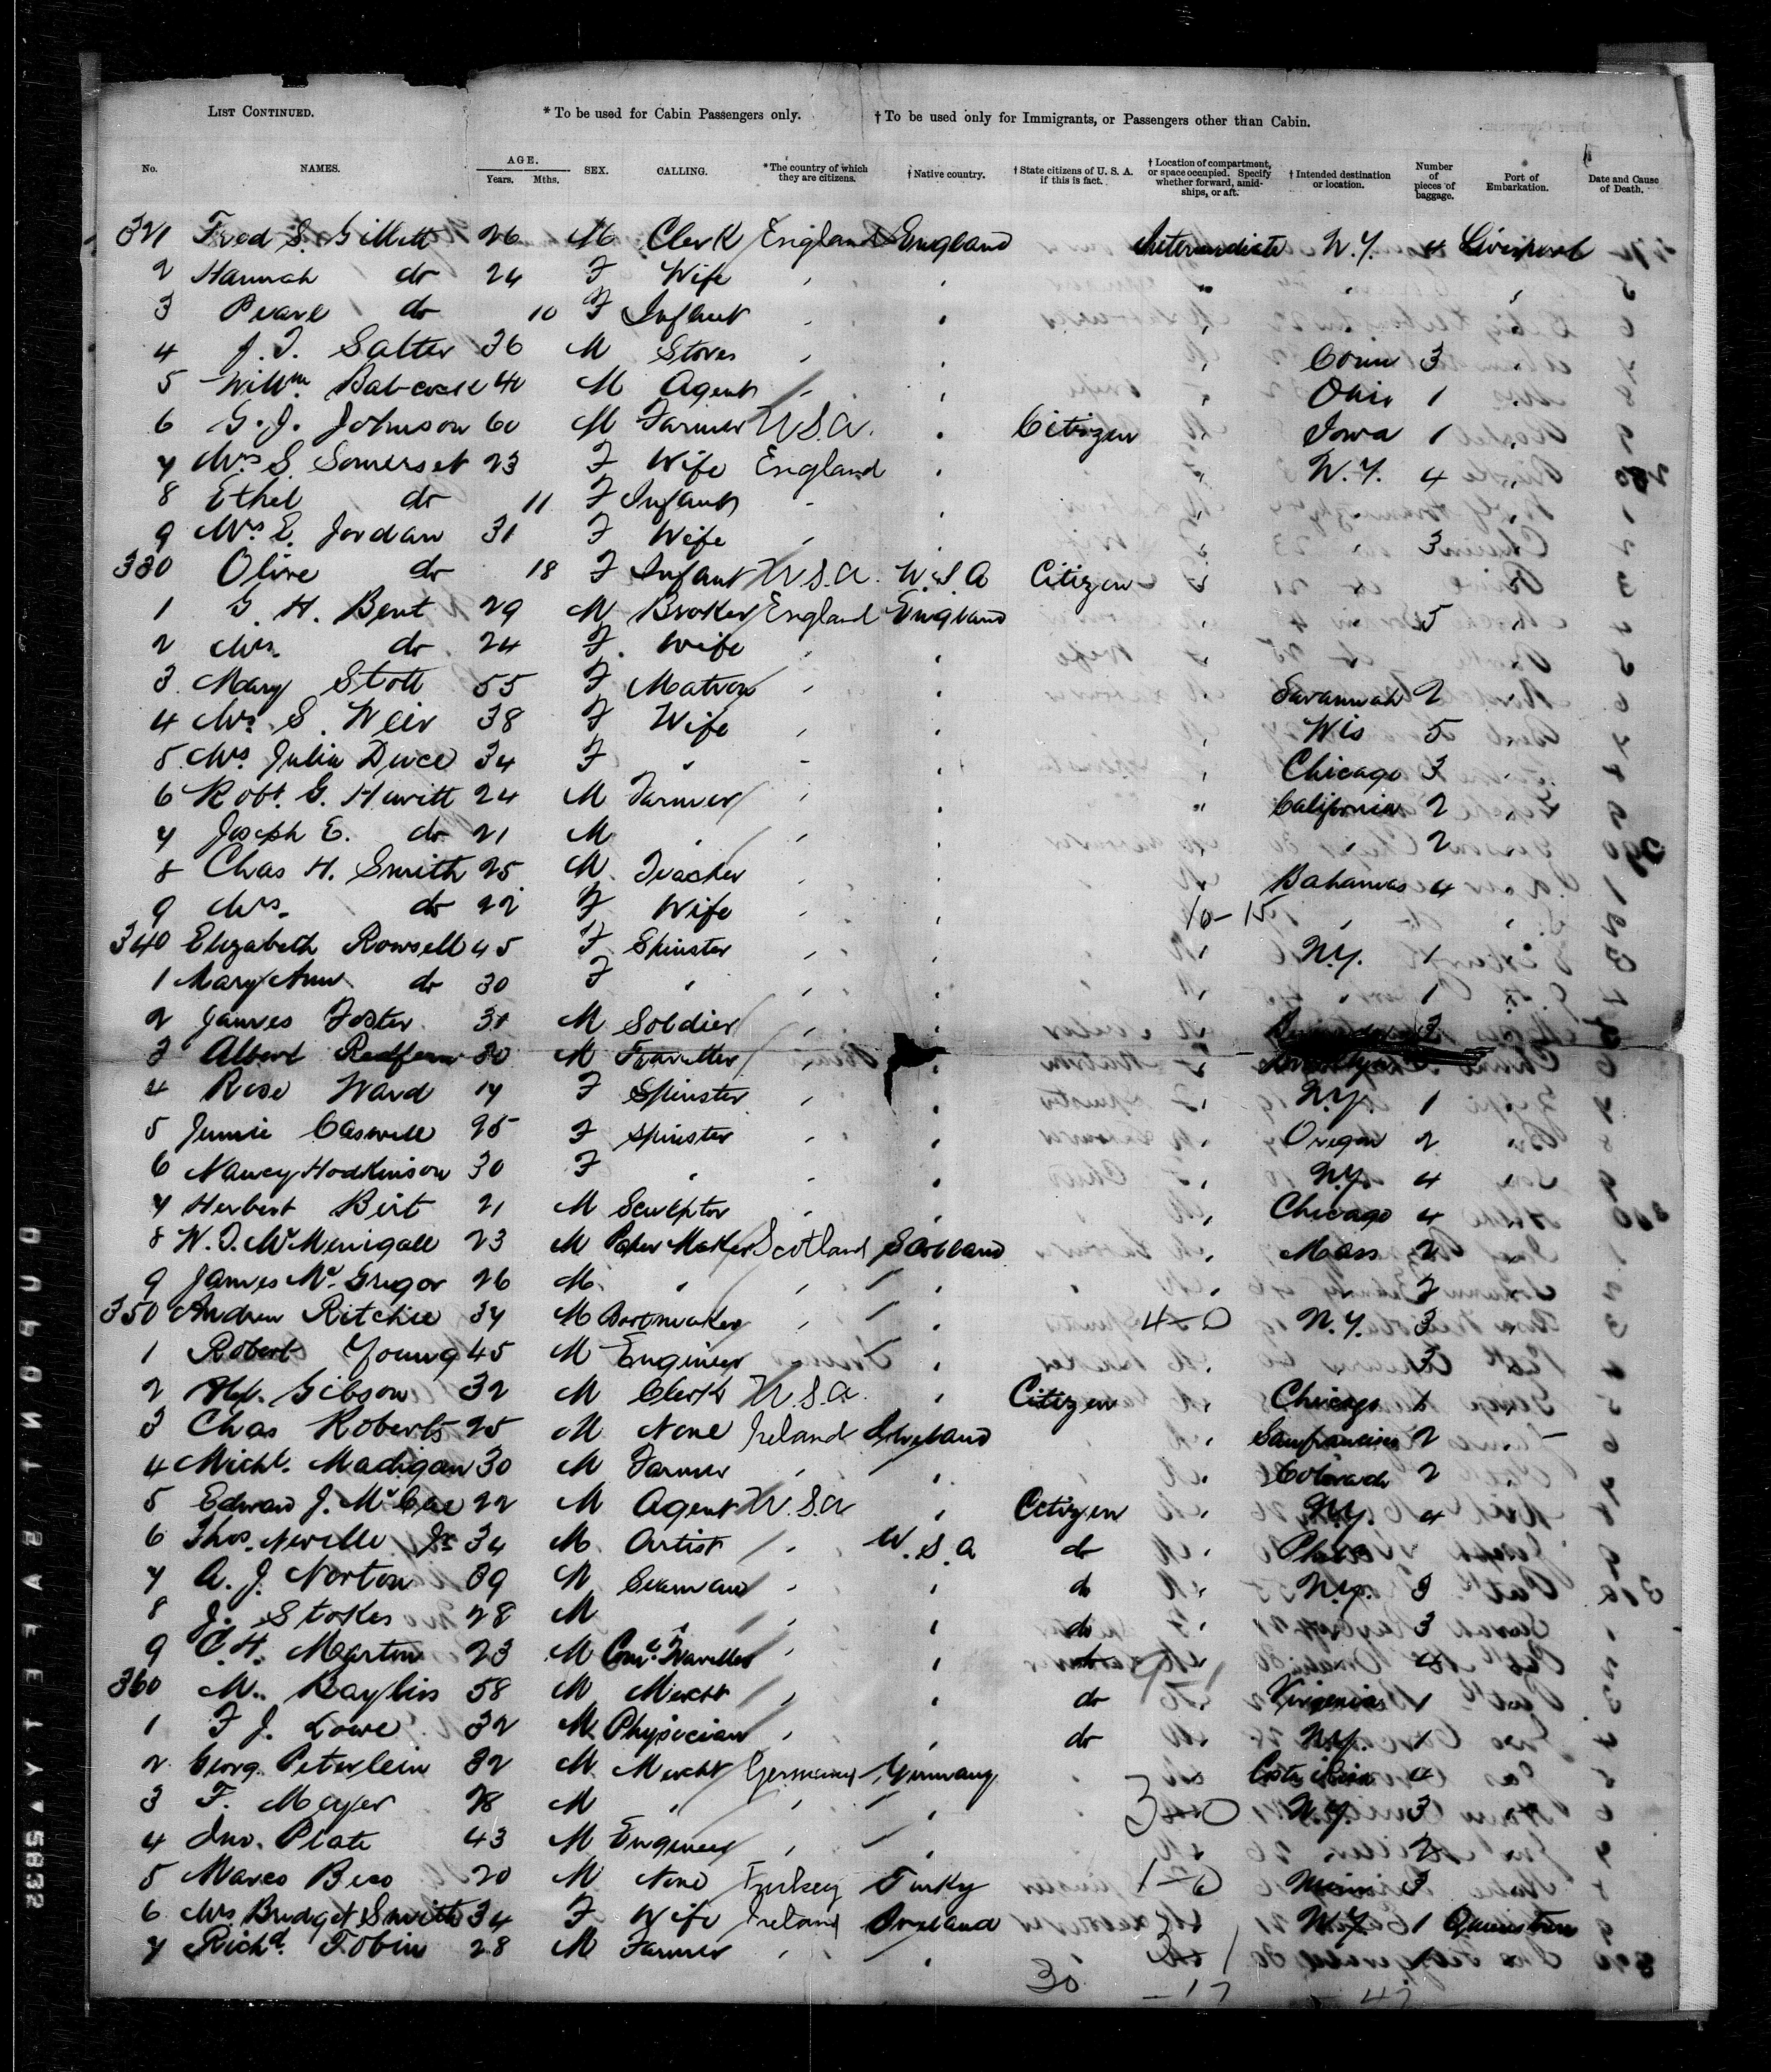 LIST CONTINUED. * To be used for Cabin Passengers only. † To be used only for Immigrants, or Passengers other than Cabin.
No. NAMES. AGE. Years. Mths. SEX. CALLING. * The country of which they are citizens. † Native country. † State citizens of U. S. A. if this is fact. † Location of compartment, or space occupied. Specify whether forward, amidships, or aft. † Intended destination or location. Number of pieces of baggage. Port of Embarkation. Date and Cause of Death.
321 Fred S. Gillett 26 M Clerk England England Intermediate N.Y. 4 Liverpool
2 Hannah do 24 F Wife " " " " "
3 Pearl do 10 F Infant " " "
4 J. T. Salter 36 M Stores " " " Conn 3 "
5 Willm. Babcock 40 M Agent " " " Ohio 1 "
6 G. J. Johnson 60 M Farmer U.S.A. " Citizen " Iowa 1 "
7 Mrs S Somerset 23 F Wife England " " N.Y. 4 "
8 Ethel do 11 F Infant " "
9 Mrs E. Jordan 31 F Wife " " " " 3 "
330 Olive do 18 F Infant U.S.A. U.S.A Citizen "
1 G. H. Bent 29 M Broker England England " 5 "
2 Mrs. do 24 F. Wife " "
3 Mary Stott 55 F Matron " " " Savannah 2 "
4 Mrs. S. Weir 38 F Wife " " " Wis 5 "
5 Mrs Julia Duce 34 F " " " " Chicago 3 "
6 Robt. G. Hewitt 24 M Farmer " " " California 2 "
7 Joseph E. do 21 M " " " " 2 "
8 Chas H. Smith 25 M Teacher " " " Bahamas 4 "
9 Mrs. do 22 F Wife " " 10-15 " "
340 Elizabeth Rowsell 45 F Spinster " " " N.Y. 1 "
1 Mary Ann do 30 F " " " " " 1 "
2 James Foster 31 M Soldier " " " 3
3 Albert Redfern 30 M Traveller " " " Brooklyn
4 Rose Ward 17 F Spinster " " " N.Y. 1 "
5 Jennie Caswell 25 F Spinster " " " Oregon 2 "
6 Nancy Hodkinson 30 F " " " " N.Y. 4 "
7 Herbert Birt 21 M Sculptor " " " Chicago 4 "
8 W. J. McMenigall 23 M Paper Maker Scotland Scotland " Mass 2 "
9 James McGregor 26 M. " " " " " 2 "
350 Andrew Ritchie 34 M Bootmaker " " 4-0 N.Y. 3 "
1 Robert Young 45 M Engineer " " " 3 "
2 Gibson 32 M Clerk U.S.A. " Citizen " Chicago 1 "
3 Chas Roberts 25 M None Ireland Ireland " Sanfrancisco 2 "
4 Michl. Madigan 30 M Farmer " " " Colorado 2 "
5 Edward J. McCae 22 M Agent U.S.A " Citizen " N.Y. 4 "
6 Thos. Neville Jr 34 M Artist " U.S.A do " Phila "
7 A. J. Norton 39 M Seaman " " do " N.Y. 3 "
8 J. Stokes 28 M " " " do " " 3 "
9 C. H. Marton 23 M Coml. Traveller " " do " 4
360 M. Baylis 58 M Mercht " " do " Virginia 1 "
1 F J. Lowe 32 M Physician " " do " N.Y. 1
2 Georg. Peterlein 32 M Mercht Germany Germany " Costa Rica 4
3 F. Meyer 28 M " " " 3-0 N.Y. 3
4 Jno. Plate 43 M Engineer " " " 2
5 Marco Beso 20 M None Turkey Turky 1-0 Minn 3
6 Mrs. Bridget Smith 34 F Wife Ireland Ireland " N.Y 1 Queenstown
7 Richd. Tobin 28 M Farmer " " 3-1 " 1 "
30 -17 - 47
DUPONT SAFETY